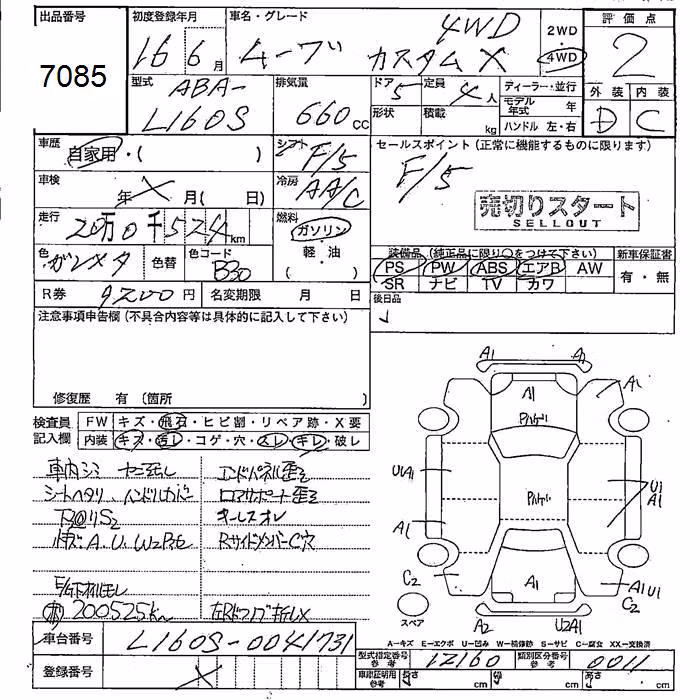 出品番号 初度登録年月 車名・グレード 4WD 2WD 評価点
7085 16 6月 ムーブ カスタム X ・ 4WD 2
型式 ABA- 排気量 ドア 5 定員 4人 ディーラー・並行 外装 内装
L160S 660cc 形状 積載 kg モデル年式 年 D C
ハンドル 左・右
車歴 自家用・( ) シフト F/5 セールスポイント (正常に機能するものに限ります)
車検 年 X 月( 日) 冷房 AA/C F/5
売切りスタート
SELLOUT
走行 20万0千524km 燃料 ガソリン
軽・油
( )
色 ガンメタ 色替 色コード B30
装備品 (純正品に限り○をつけて下さい) 新車保証書
PS PW ABS エアB AW 有・無
SR ナビ TV カワ
R券 9200円 名変期限 月 日 後日品
注意事項申告欄 (不具合内容等は具体的に記入して下さい)
修復歴 有 (箇所 )
検査員 FW キズ・飛石・ヒビ割・リペア跡・X要
記入欄 内装 キズ・汚レ・コゲ・穴・スレ・キレ・破レ
車内シミ エンドパネル歪ミ
シートヘタリ、ハンドルカバー ロアサポート歪ミ
キーレスオレ
RサイドメンバーC穴
E/G下オイルモレ
200525km
車台番号 L160S-0041731
登録番号 X
A1 A1
A1 A1
Pハゲ
UA1 Pハゲ U1
A1
A1
C2 A1 A1U1
C2
スペア A2 U2A1
A-キズ E-エクボ U-凹み W-補修跡 S-サビ C-腐食 XX-交換済
型式指定番号 参考 12160 類別区分番号 参考 0011
車庫証明用 参考 長さ cm 幅 cm 高さ cm